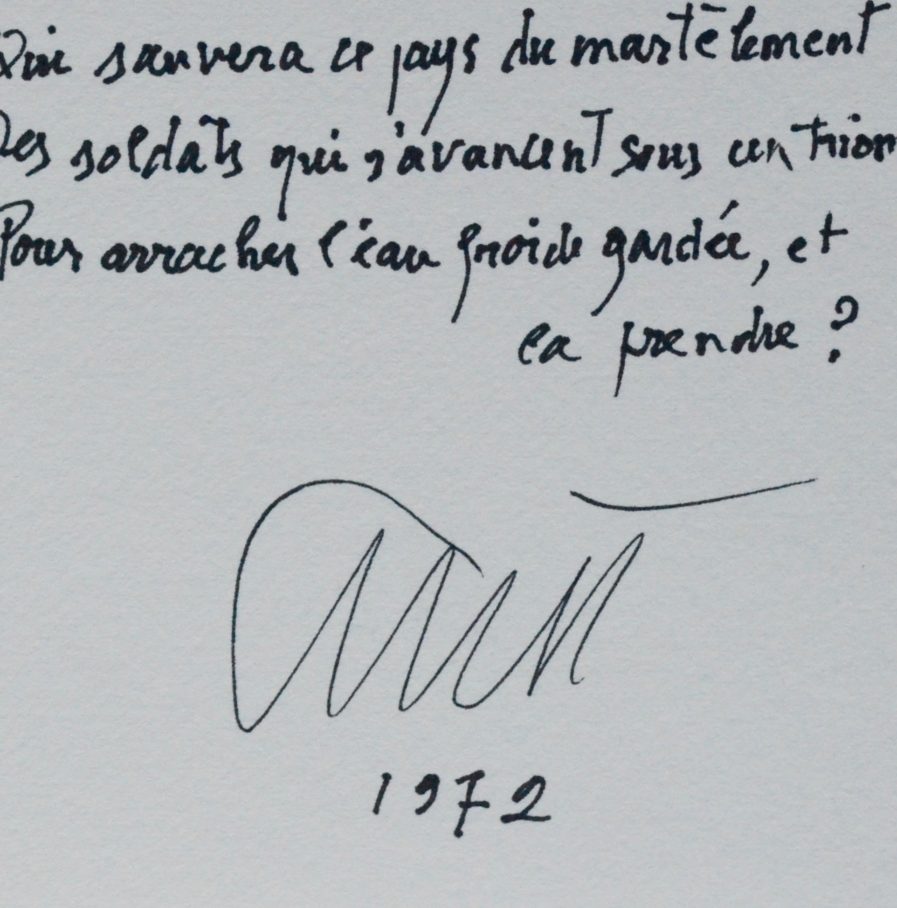 Qui sauvera ce pays du martèlement
Des soldats qui s'avancent sous un
Pour arracher l'eau froide gardée, et
la prendre ?
1972